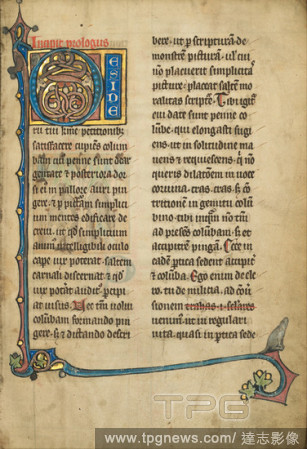 Incipit prologus
DESIDE
rii tui kīme petitionibꝫ
satisfacere cupiens colum
bam cuiꝰ penne sunt dear
gentate ⁊ posteriora dor
si ei in pallore auri pin
gere. ⁊ p picturam simpli
cium mentes edificare de
creui. ut qď simplicium
animꝰ intelligibili oculo
cape uix poterat. saltem
carnali discernat ⁊ qď
uix poťat auditꝰ pcipi
at uisus. Nec tm̄ uolui
columbam formando pin
gere. sꝫ ⁊ dictando descri
bere. ut p scripturā de
monstrem picturā. ut cui
nō placuerit simplicitas
picture. placeat saltē mo
ralitas scripte. Tibi igit
cui date sunt penne co
lūbe. qui elongasti fugi
ens. ut in solitudine ma
neres ⁊ requiesceres. q̇ nō
queris dilatōem in uoce
coruina. cras. cras. sꝫ cō
tritionem in gemitu colū
bino. tibi inquā nō tm̄
ad presēs colūbam. sꝫ ⁊
accipitrē pingam. Ecce in
eadē ptica sedent accipiť
⁊ colūba. Ego enim de cle
ro. tu de militia. ad con
uersionem
uenimꝰ. ut in regulari
uita. quasi in ptica sede
TPG
www.tpgnews.com / 達志影像